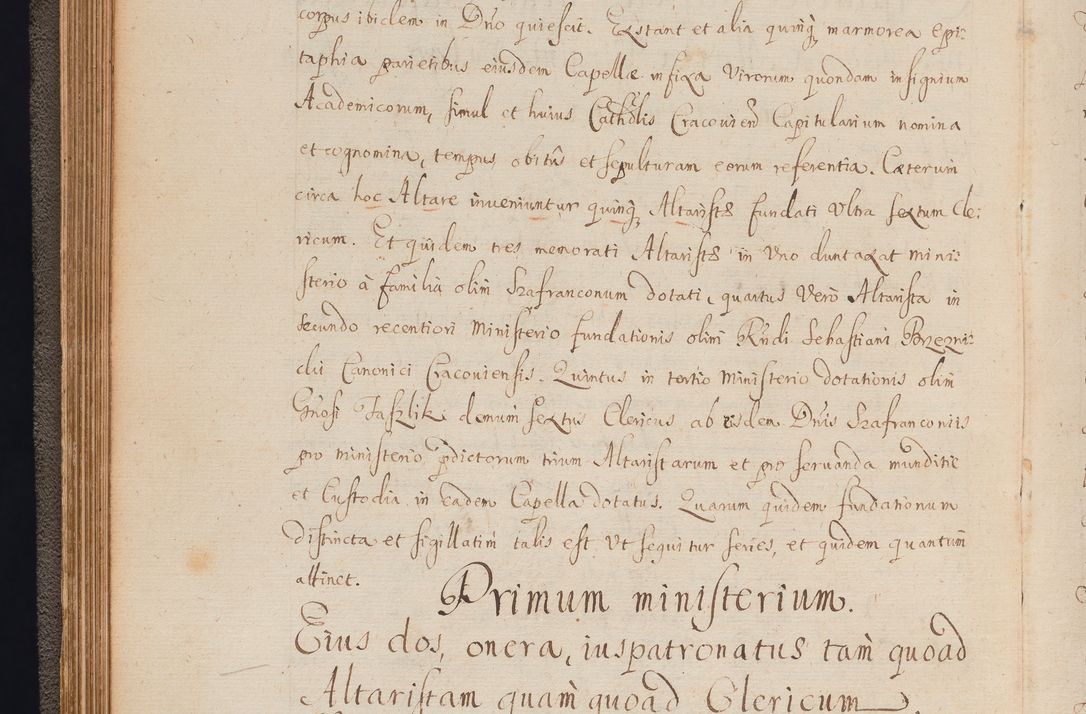 corpus ibidem in Dno quiescit. Extant et alia quinq; marmorea epi:
taphia parietibus eiusdem Capellæ infixa Virorum quondam insignium
Academicorum, simul et huius Cathdlis Cracovien Capitularium nomina
et cognomina, tempus obitus et sepulturam eorum referentia. Cæterum
circa hoc Altare inveniuntur quinq; Altaristæ fundati Ultra sextum Cle:
ricum. Et quidem tres memorati Altaristæ in Uno duntaxat mini:
sterio à familia olim Szafranconum dotati, quartus Vero Altarista in
secundo recentiori Ministerio fundationis olim Rndi Sebastiani Brzezni:
cii Canonici Cracoviensis. Quintus in tertio Ministerio dotationis olim
Gnosi Taszlik demum sextus Clericus ab eisdem Dnis Szafranconiis
pro ministerio pdictorum trium Altaristarum et pro servanda munditie
et Custodia in eadem Capella dotatus. Quarum quidem fundationum
distincta et sigillatim talis est Ut sequitur series, et quidem quantum
attinet.
Primum ministerium.
Eius dos, onera, iuspatronatus tam quoad
Altaristam quam quoad Clericum.